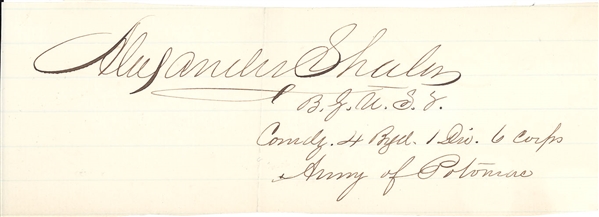 Alexander Shaler
B. G. U. S. V.
Comdg. 4 Bgd. 1 Div. 6 Corps
Army of Potomac